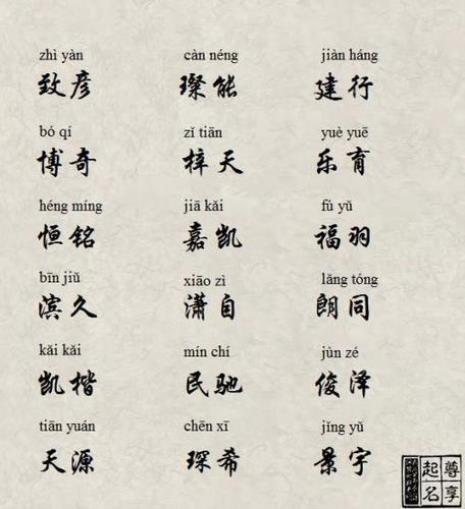 zhì yàn càn néng jiàn háng
致彦 璨能 建行
bó qí zǐ tiān yuè yuē
博奇 梓天 乐育
héng míng jiā kǎi fú yǔ
恒铭 嘉凯 福羽
bīn jiǔ xiāo zì lǎng tóng
滨久 潇自 朗同
kǎi kǎi mín chí jùn zé
凯楷 民驰 俊泽
tiān yuán chēn xī jǐng yǔ
天源 琛希 景宇
尊享
起名